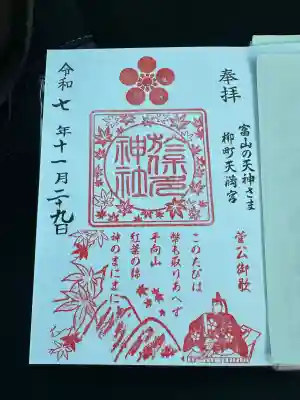 奉拝
富山の天神さま
柳町天満宮
神社
菅公御歌
このたびは
幣も取りあへず
手向山
紅葉の錦
神のまにまに
令和七年十一月二十九日